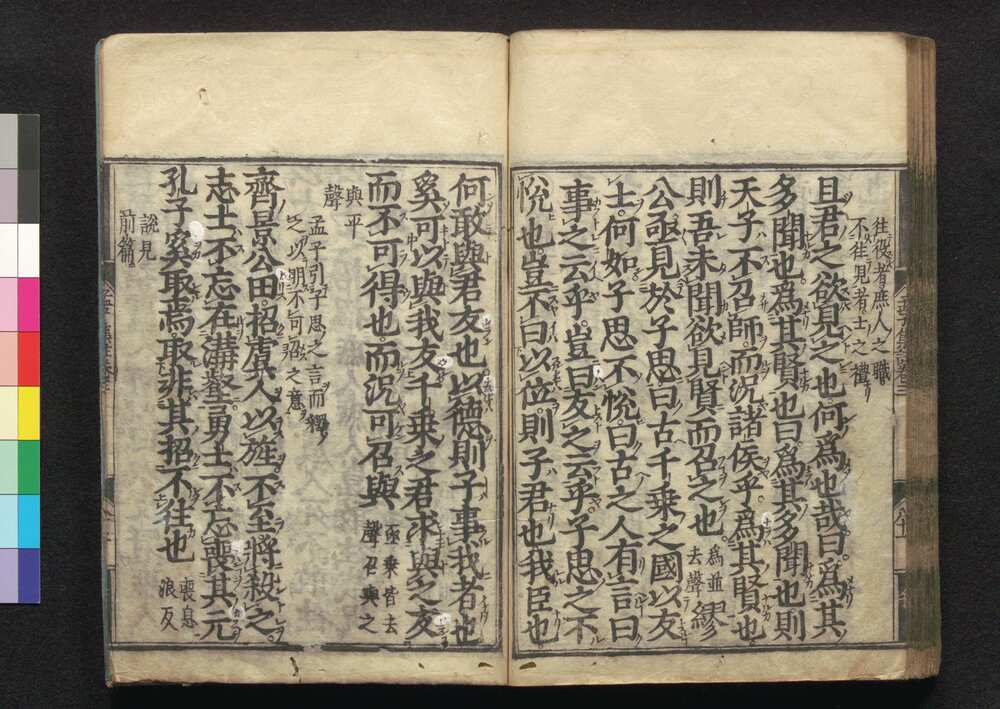 往役者庶人之職
不往見者士之禮
且君之欲見之也何爲也哉曰爲其
多聞也爲其賢也曰爲其多聞也則
天子不召師而況諸侯乎爲其賢也
則吾未聞欲見賢而召之也
爲並
去聲
繆
公亟見於子思曰古千乘之國以友
士何如子思不悅曰古之人有言曰
事之云乎豈曰友之云乎子思之不
悅也豈不曰以位則子君也我臣也
何敢與君友也以德則子事我者也
奚可以與我友千乘之君求與之友
而不可得也而況可召與
亟乘皆去
聲召與之
與平
聲
孟子引子思之言而釋
之以明不可召之意
齊景公田招虞人以旌不至將殺之
志士不忘在溝壑勇士不忘喪其元
孔子奚取焉取非其招不往也
喪息
浪反
說見
前篇